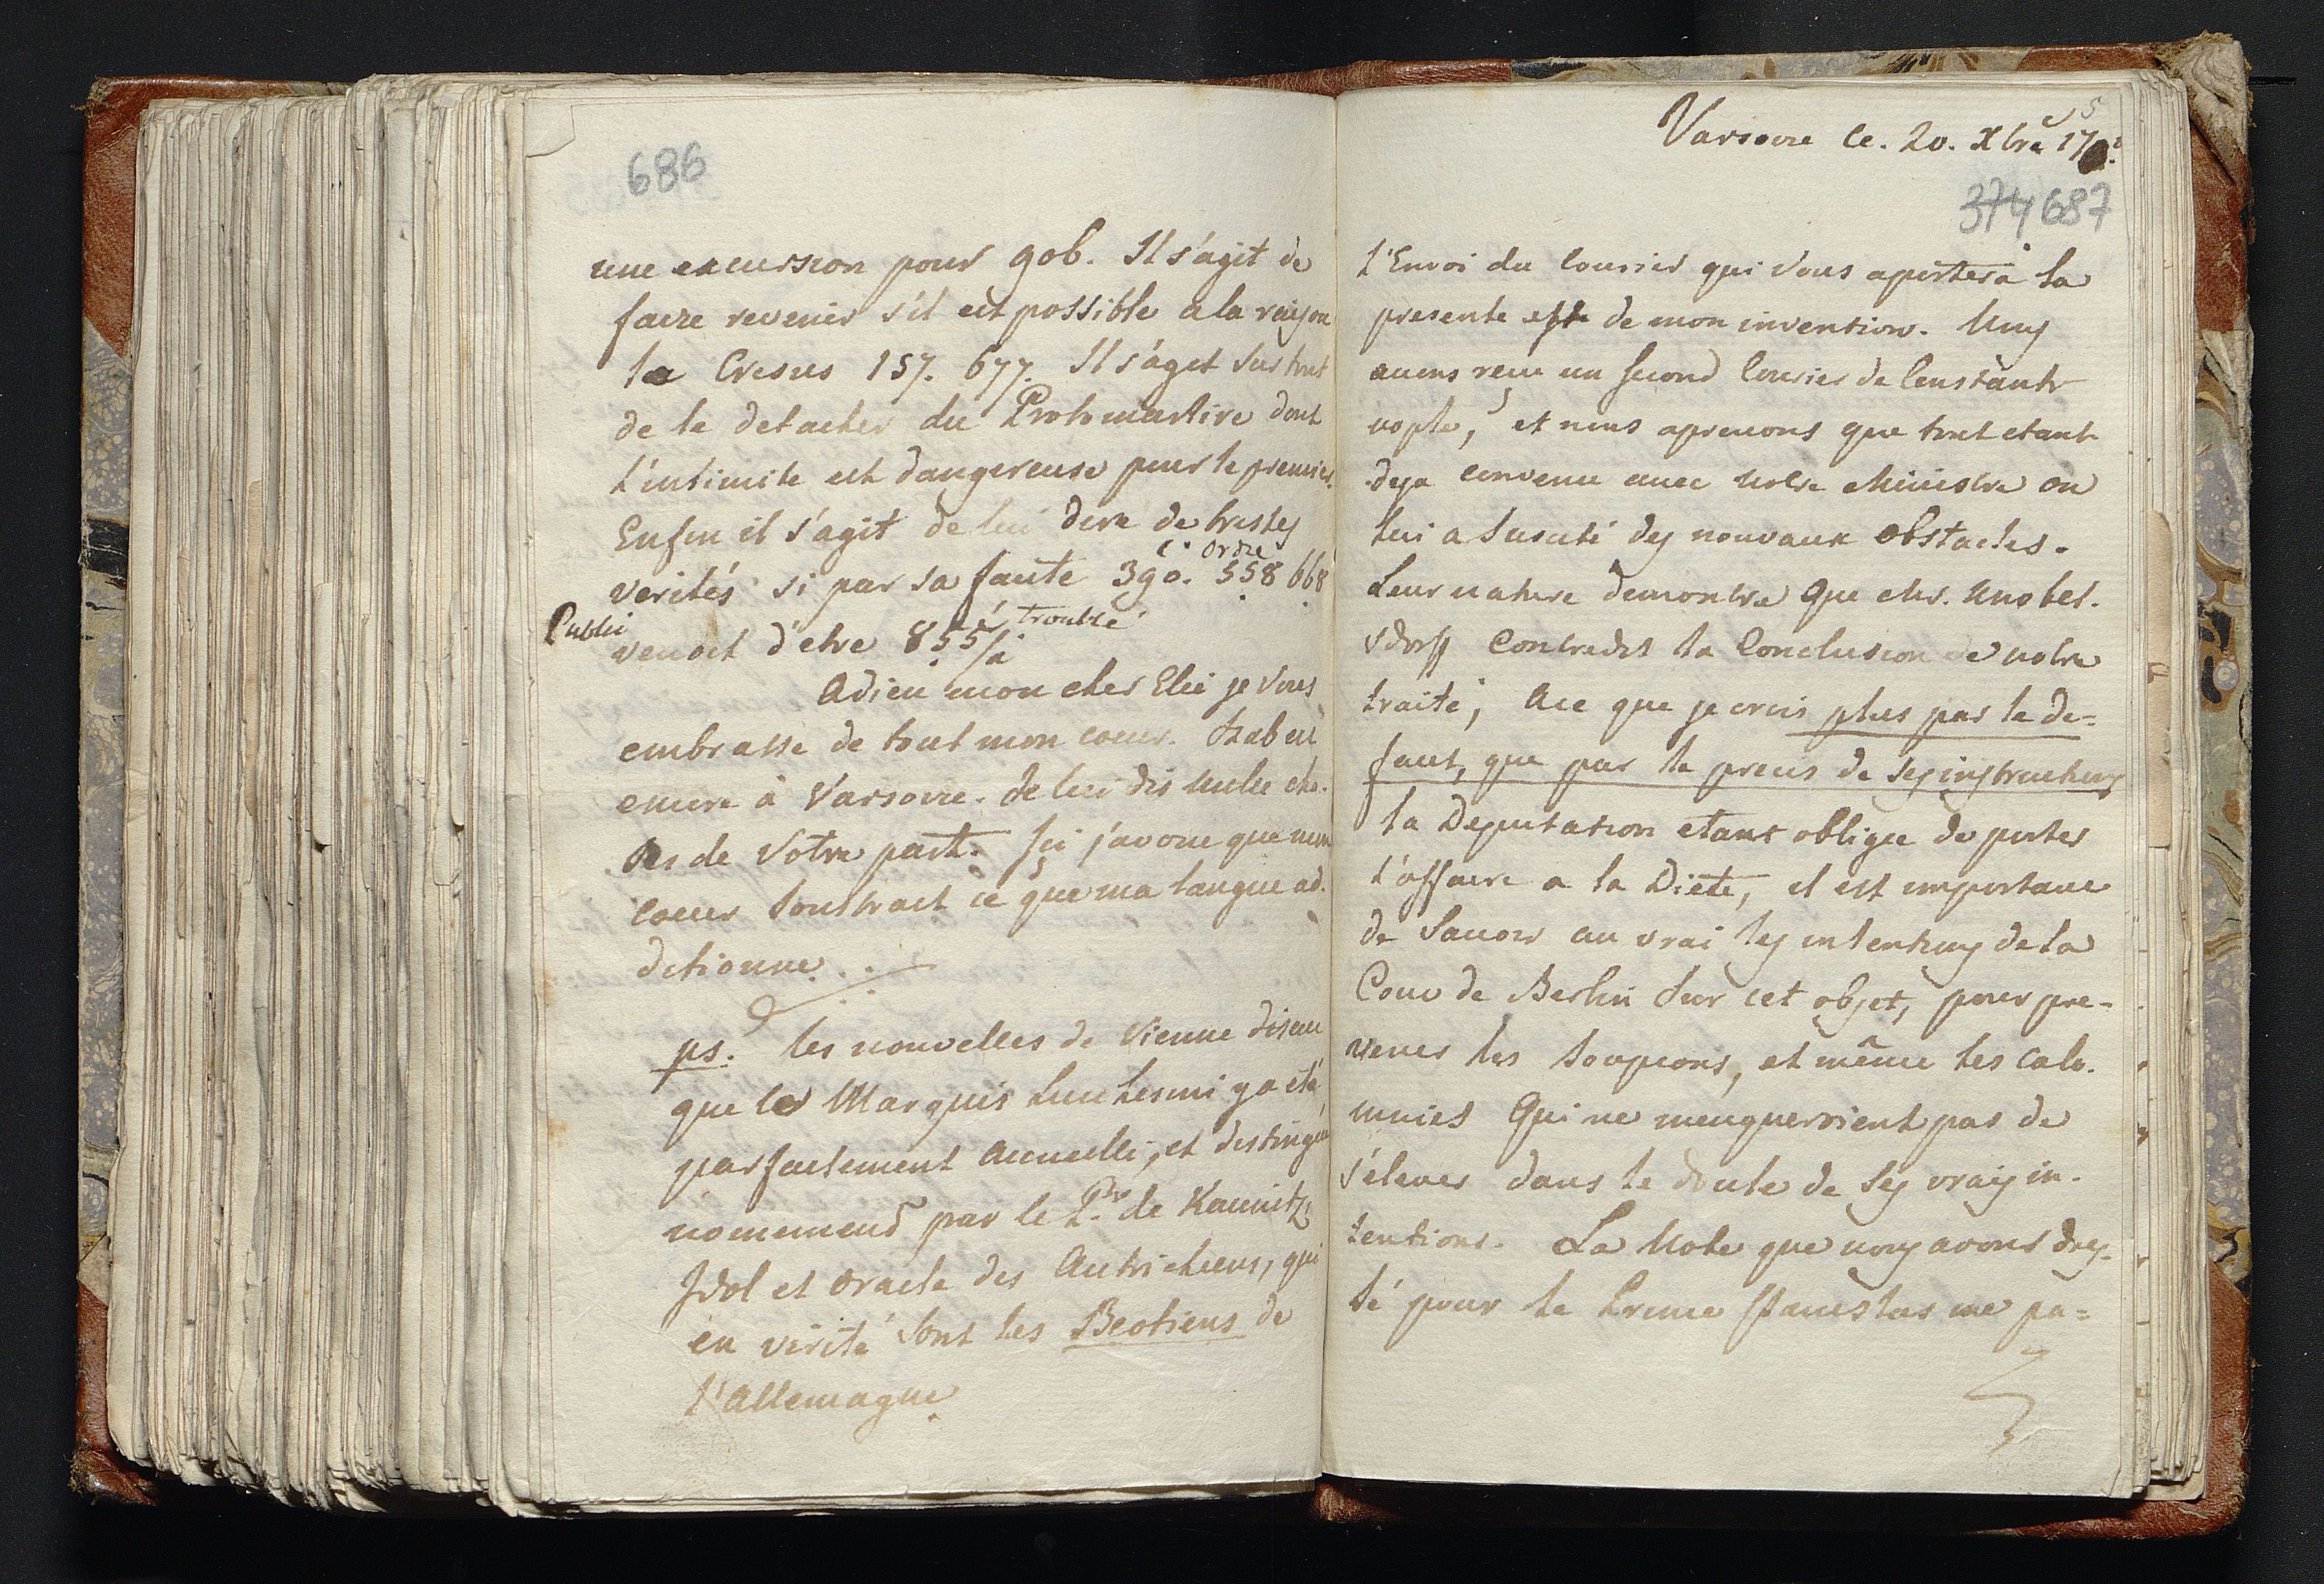 686
une excursion pour 906. Il s'agit de
faire revenir s'il est possible a la raison
le Cresus 157. 677. Il s'agit sur tout
de le detacher du Protomartire dont
l'intimité est dangereuse pour le premier.
Enfin il s'agit de lui dire de tristes
l'ordre
verités si par sa faute 390. 558 668
Public
troublé
venoit d'etre 855/a
Adieu mon cher Elie je vous
embrasse de tout mon coeur. Isabeu
encore à Varsovie. Je lui dis mille cho-
ses de Votre part. Ici j'avoue que mon
coeur soustrait ce que ma langue ad-
ditionne.
ps. les nouvelles de Vienne disent
que le Marquis Luchesini y a eté
parfaitement accueilli, et distingué
nomement par le Pr. de Kaunitz,
Idol et oracle des Autrichiens, qui
en vérité sont les Beotiens de
l'Allemagne
Varsovie le. 20. Xbre 179
5
374 687
L'Envoi du Courier qui vous aportera la
presente est de mon invention. Nous
avons reçu un second Courier de Constanti-
nople, et nous aprenons que tout etant
deja convenu avec notre Ministre on
lui a suscité des nouvaux obstacles.
Leur nature demontre que Mr. Knobel-
sdorff contredit la Conclusion de notre
traité, Ace que je crois plus par le de=
faut, que par le precis de ses instructions
la Deputation etant obligée de porter
l'affaire a la Diete, il est important
de Savoir au vrai les intentions de la
Cour de Berlin sur cet objet, pour pre-
venir les soupçons, et même les calo-
mnies Qui ne menqueroient pas de
s'elever dans le doute de ses vrays in-
tentions. La Note que nous avons dres-
sé pour le Prince Stanislas me pa=